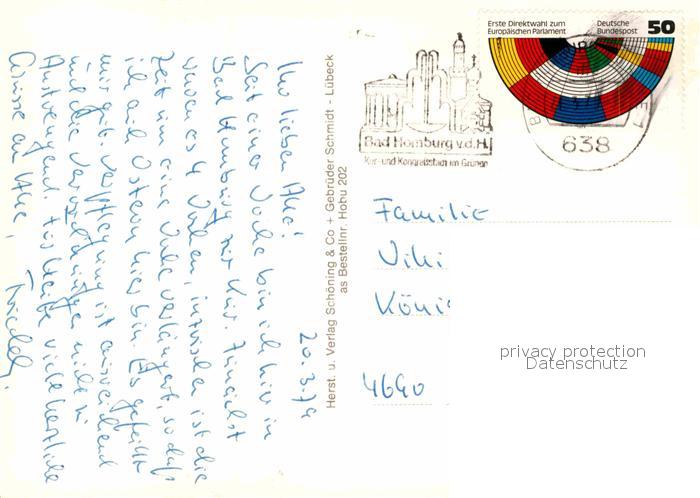 20.3.79
Ihr lieben Alle!
Seit einer Woche bin ich hier in
Bad Homburg zur Kur. Zunächst
waren es 4 Wochen, inzwischen ist die
Zeit um eine Woche verlängert, sodaß
ich auf Ostern hier bin. Es gefällt
mir gut. Verpflegung ist ausreichend
und die
Anstrengend. Für heute viele herzliche
Grüsse an Alle,
Herst. u. Verlag Schöning & Co + Gebrüder Schmidt - Lübeck
as Bestellnr. Hobu 202
Erste Direktwahl zum
Europäischen Parlament
Deutsche
Bundespost
50
Bad Homburg v.d.H.
Kur- und Kongreßstadt im Grünen
638
Familie
Viki
Köni
4640
privacy protection
Datenschutz